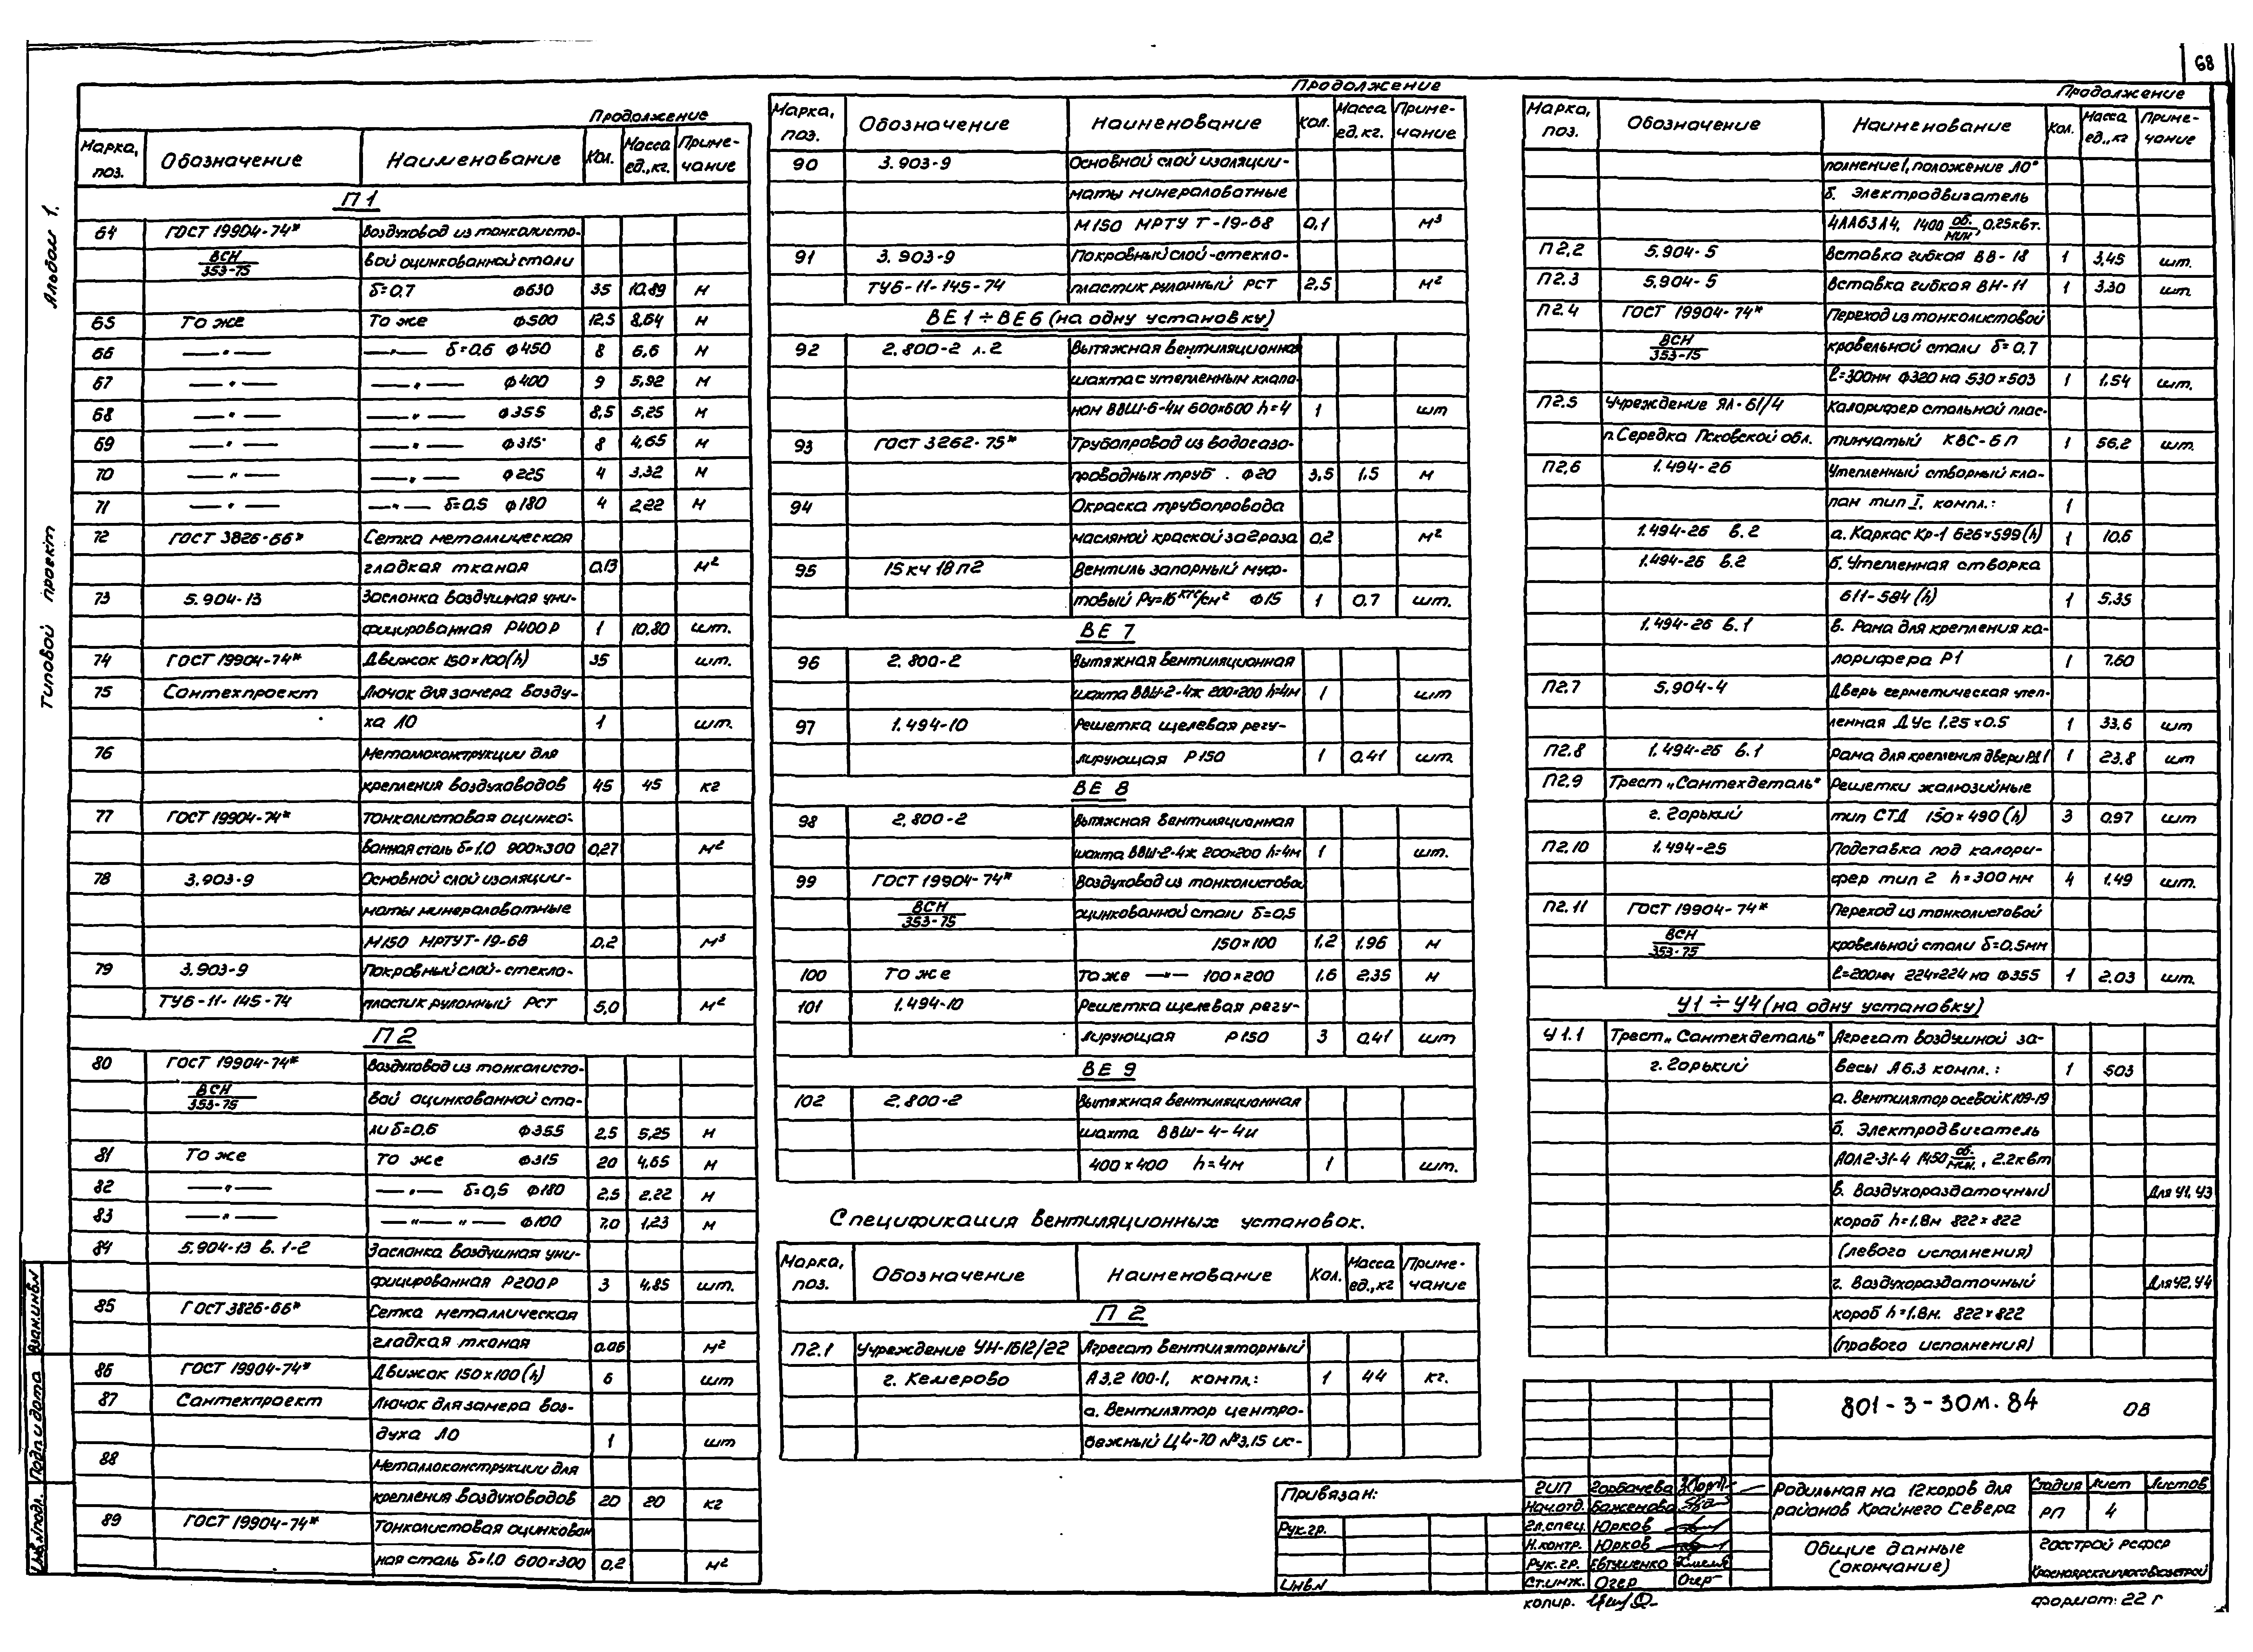 68
Альбом 1.
Типовой проект
Продолжение
Марка, поз. Обозначение Наименование Кол. Масса ед., кг. Приме-чание
П1
64 ГОСТ 19904-74* Воздуховод из тонколисто-
ВСН 353-75 вой оцинкованной стали
δ=0.7 Ф630 35 10,89 м
65 То же То же Ф500 12,5 8,64 м
66 —"— —"— δ=0.6 Ф450 8 6,6 м
67 —"— —"— Ф400 9 5,92 м
68 —"— —"— Ф355 8,5 5,25 м
69 —"— —"— Ф315 8 4,65 м
70 —"— —"— Ф225 4 3.32 м
71 —"— —"— δ=0.5 Ф180 4 2,22 м
72 ГОСТ 3826-66* Сетка металлическая
гладкая тканая 0,13 м²
73 5.904-13 Заслонка воздушная уни-
фицированная Р400Р 1 10,80 шт.
74 ГОСТ 19904-74* Движок 150×100(h) 35 шт.
75 Сантехпроект Лючок для замера возду-
ха ЛО 1 шт.
76 Металлоконструкции для
крепления воздуховодов 45 45 кг
77 ГОСТ 19904-74* Тонколистовая оцинко-
ванная сталь δ=1.0 900×300 0,27 м²
78 3.903-9 Основной слой изоляции-
маты минераловатные
М150 МРТУТ-19-68 0,2 м³
79 3.903-9 Покровный слой-стекло-
ТУ6-11-145-74 пластик рулонный РСТ 5,0 м²
П2
80 ГОСТ 19904-74* Воздуховод из тонколисто-
ВСН 353-75 вой оцинкованной ста-
ли δ=0,6 Ф355 2,5 5,25 м
81 То же То же Ф315 20 4,65 м
82 —"— —"— δ=0,5 Ф180 2,5 2.22 м
83 —"— —"—"— Ф100 7,0 1,23 м
84 5.904-13 в. 1-2 Заслонка воздушная уни-
фицированная Р200Р 3 4,85 шт.
85 ГОСТ 3826-66* Сетка металлическая
гладкая тканая 0.06 м²
86 ГОСТ 19904-74* Движок 150×100(h) 6 шт
87 Сантехпроект Лючок для замера воз-
духа ЛО 1 шт
88 Металлоконструкции для
крепления воздуховодов 20 20 кг
89 ГОСТ 19904-74* Тонколистовая оцинкован
ная сталь δ=1.0 600×300 0,2 м²
Продолжение
Марка, поз. Обозначение Наименование Кол. Масса ед. кг. Приме-чание
90 3.903-9 Основной слой изоляции-
маты минераловатные
М150 МРТУ Т-19-68 0,1 м³
91 3.903-9 Покровный слой-стекло-
ТУ6-11-145-74 пластик рулонный РСТ 2,5 м²
ВЕ1÷ВЕ6 (на одну установку)
92 2.800-2 л.2 Вытяжная вентиляционная
шахта с утепленным клапа-
ном ВВШ-6-4и 600×600 h=4 1 шт
93 ГОСТ 3262-75* Трубопровод из водогазо-
проводных труб . Ф20 3,5 1,5 м
94 Окраска трубопровода
масляной краской за 2 раза 0,2 м²
95 15кч 18п2 Вентиль запорный муф-
товый Ру=16 кгс/см² Ф15 1 0.7 шт.
ВЕ 7
96 2.800-2 Вытяжная вентиляционная
шахта ВВШ-2-4ж 200×200 h=4м 1 шт
97 1.494-10 Решетка щелевая регу-
лирующая Р150 1 0,41 шт.
ВЕ 8
98 2.800-2 Вытяжная вентиляционная
шахта ВВШ-2-4ж 200×200 h=4м 1 шт.
99 ГОСТ 19904-74* Воздуховод из тонколистовой
ВСН 353-75 оцинкованной стали δ=0,5
150×100 1,2 1,96 м
100 То же То же —"— 100×200 1,6 2,35 м
101 1.494-10 Решетка щелевая регу-
лирующая Р150 3 0,41 шт
ВЕ 9
102 2.800-2 Вытяжная вентиляционная
шахта ВВШ-4-4и
400×400 h=4м 1 шт.
Спецификация вентиляционных установок.
Марка, поз. Обозначение Наименование Кол. Масса ед., кг Приме-чание
П 2
П2.1 Учреждение УН-1612/22 Агрегат вентиляторный
г. Кемерово А3,2 100-1, компл.: 1 44 кг.
а. Вентилятор центро-
бежный Ц4-70 №3,15 ис-
Продолжение
Марка, поз. Обозначение Наименование Кол. Масса ед., кг Приме-чание
полнение 1, положение Л0°
б. Электродвигатель
4АА63А4, 1400 об./мин, 0,25кВт.
П2,2 5.904-5 Вставка гибкая ВВ-18 1 3,45 шт.
П2.3 5.904-5 Вставка гибкая ВН-11 1 3.30 шт.
П2.4 ГОСТ 19904-74* Переход из тонколистовой
ВСН 353-75 кровельной стали δ=0,7
l=300мм Ф320 на 530×503 1 1.54 шт.
П2.5 Учреждение ЯЛ-61/4 Калорифер стальной плас-
п. Середка Псковской обл. тинчатый КВС-6П 1 56.2 шт.
П2,6 1.494-26 Утепленный створный кла-
пан тип I, компл.: 1
1.494-26 в.2 а. Каркас Кр-1 626×599(h) 1 10.6
1.494-26 в.2 б. Утепленная створка
611-584 (h) 1 5.35
1.494-26 в.1 в. Рама для крепления ка-
лорифера Р1 1 7.60
П2.7 5.904-4 Дверь герметическая утеп-
ленная ДУс 1.25×0.5 1 33.6 шт
П2.8 1.494-26 в.1 Рама для крепления двери РД1 1 23,8 шт
П2.9 Трест „Сантехдеталь" Решетки жалюзийные
г. Горький тип СТД 150×490(h) 3 0.97 шт
П2.10 1.494-25 Подставка под калори-
фер тип 2 h=300мм 4 1.49 шт.
П2.11 ГОСТ 19904-74* Переход из тонколистовой
ВСН 353-75 кровельной стали δ=0.5мм
l=200мм 224×224 на Ф355 1 2.03 шт.
У1÷У4 (на одну установку)
У1.1 Трест „Сантехдеталь" Агрегат воздушной за-
г. Горький весы А6.3 компл.: 1 503
а. Вентилятор осевой К109-19
б. Электродвигатель
АОЛ2-31-4 1450 об./мин., 2.2кВт
в. Воздухораздаточный Для У1, У3
короб h=1.8м 822×822
(левого исполнения)
г. Воздухораздаточный Для У2, У4
короб h=1.8м. 822×822
(правого исполнения)
801-3-30м.84 ОВ
Привязан:
Рук.гр.
Инв.N
ГИП Горбачева
Нач.отд. Баженова
Гл.спец. Юрков
Н.контр. Юрков
Рук. гр. Евтушенко
Ст.инж. Огер Огер
копир.
Родильная на 12 коров для районов Крайнего Севера
Стадия Лист Листов
РП 4
Общие данные (окончание)
Госстрой РСФСР
Красноярскгипросовхозстрой
формат: 22 г
Взам.инв.N
Подп и дата
Инв.N подл.